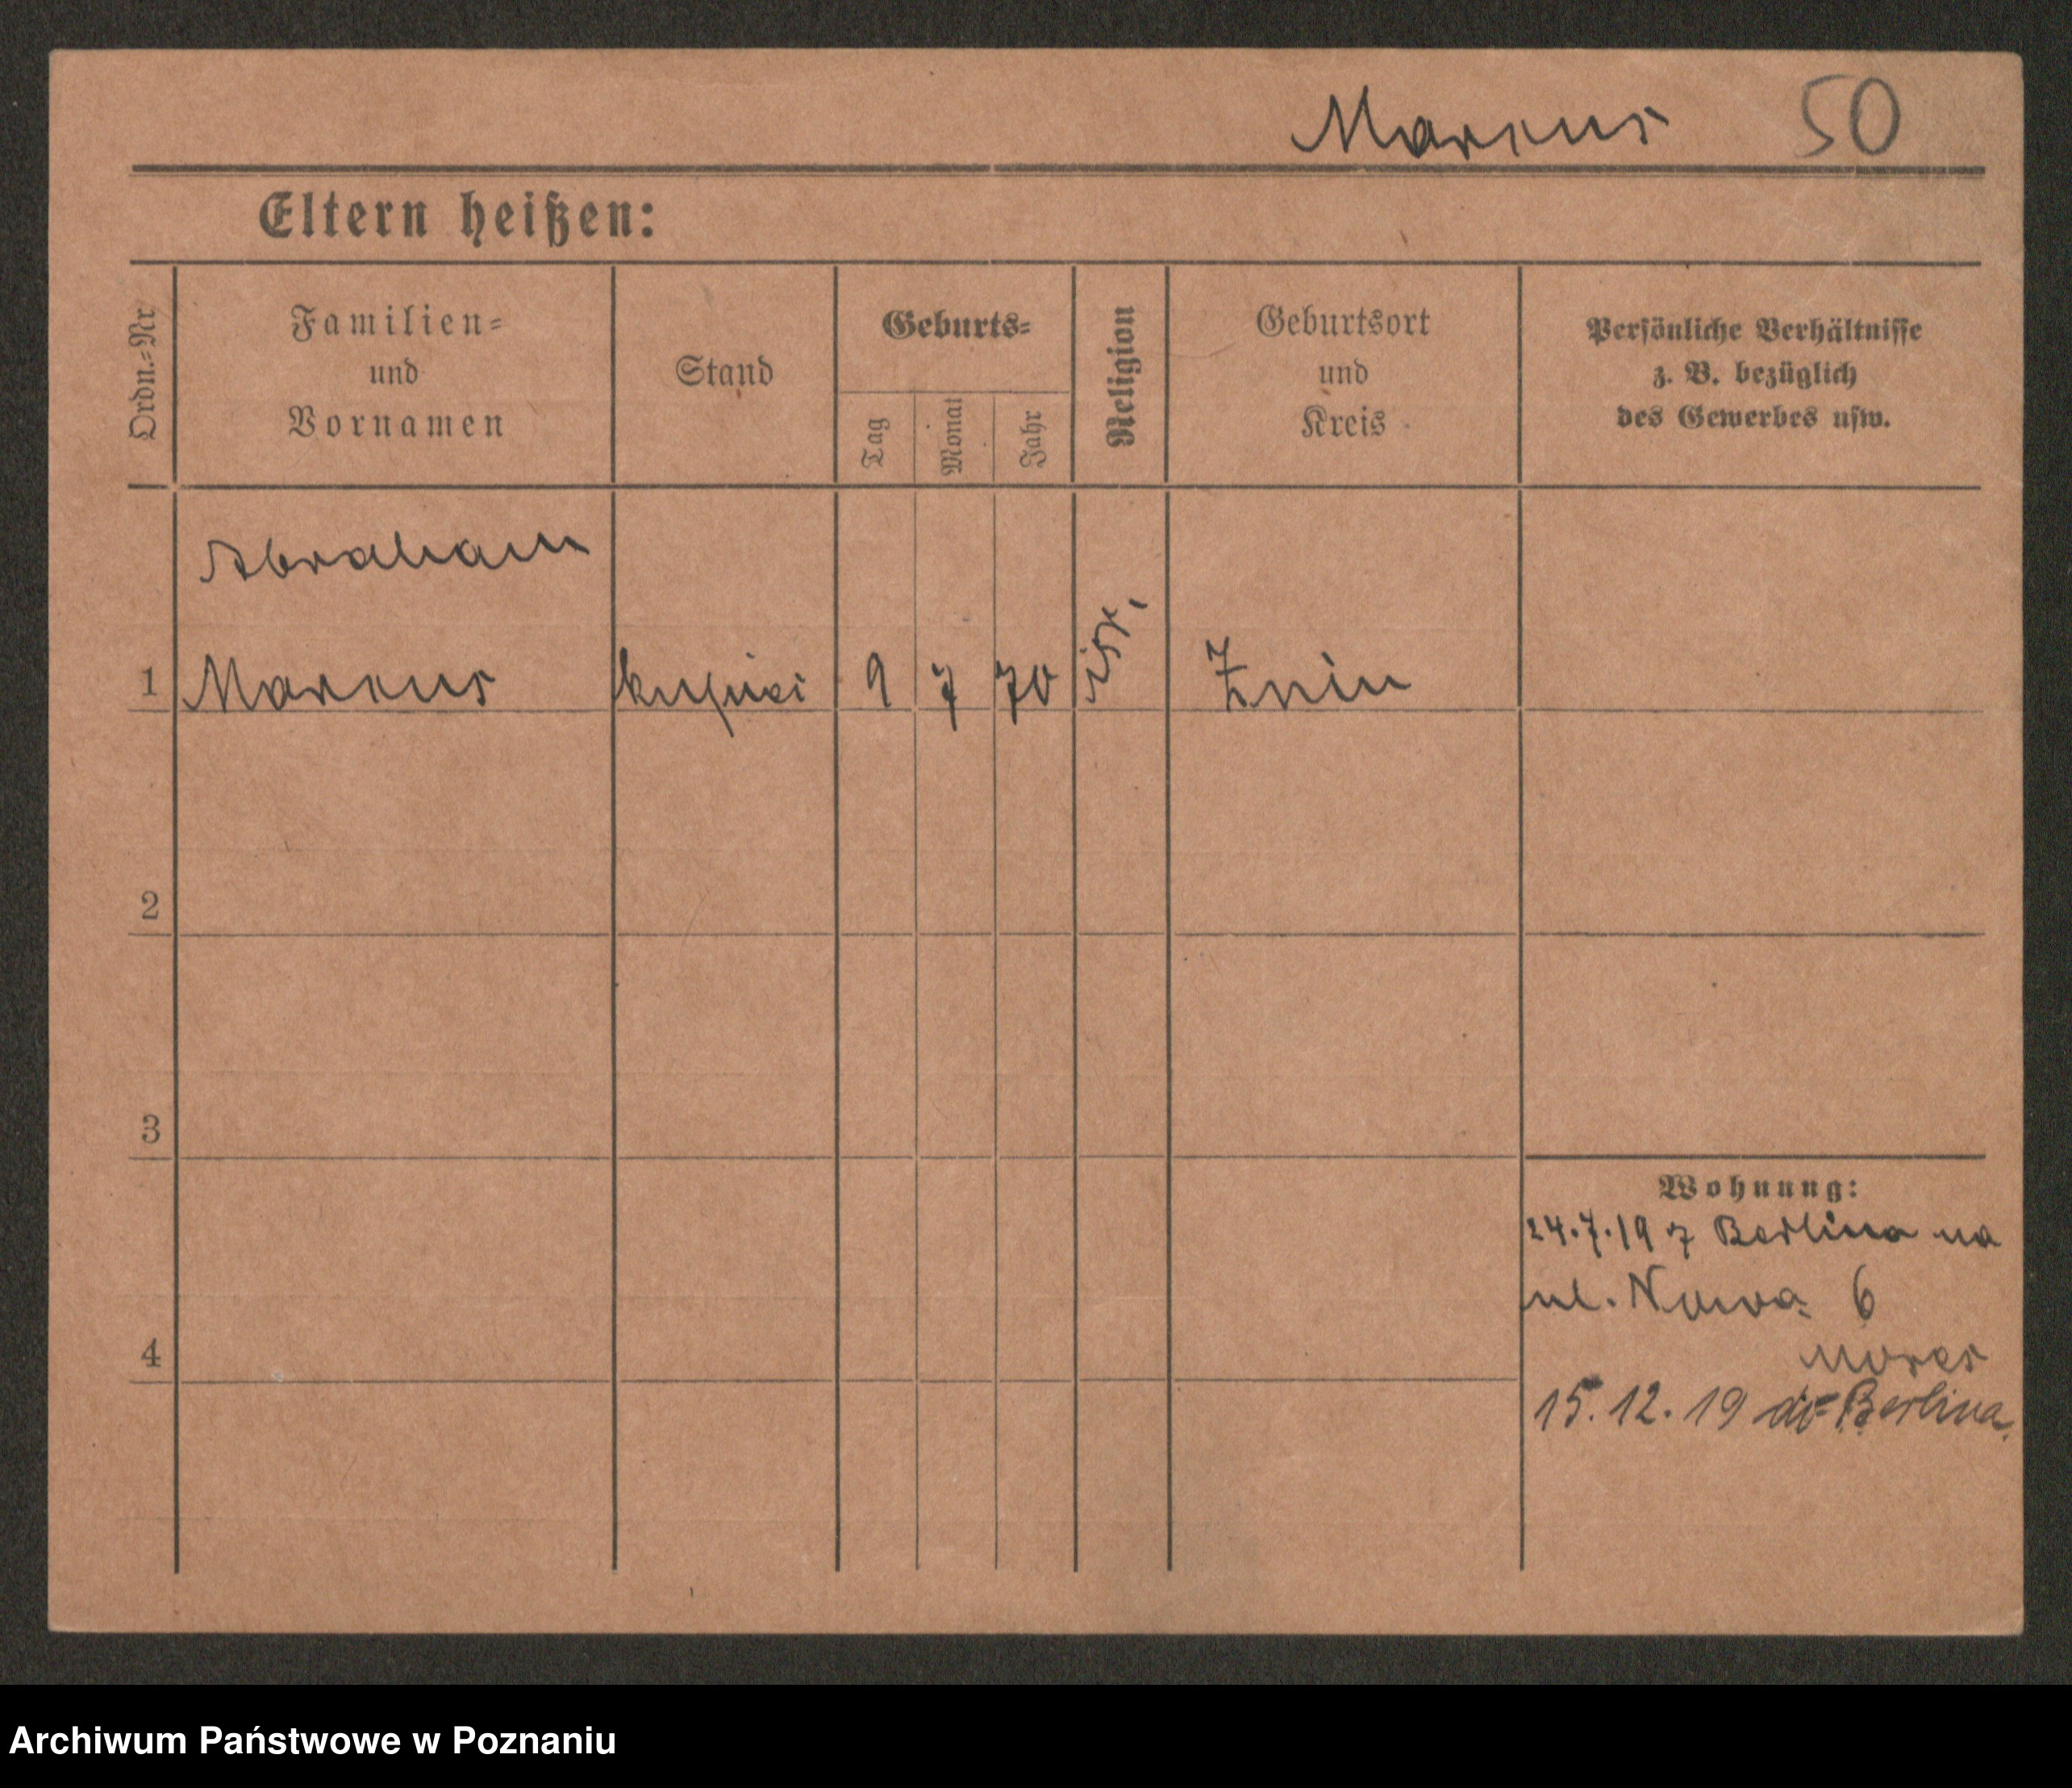 Marcus 50
Eltern heißen:
Ordn.=Nr
Familien=
und
Vornamen
Stand
Geburts=
Tag
Monat
Jahr
Religion
Geburtsort
und
Kreis
Persönliche Verhältnisse
z. B. bezüglich
des Gewerbes usw.
Abraham
1 Marcus kupiec 9 7 70 isr. Żnin
2
3
4
Wohnung:
24.7.19 z Berlina na
ul. Nowa 6
15.12.19 do Berlina
Archiwum Państwowe w Poznaniu